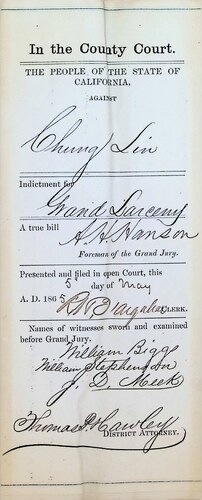 In the County Court.
THE PEOPLE OF THE STATE OF
CALIFORNIA,
AGAINST
Chung Lin
Indictment for
Grand Larceny
A true bill
A. H. Hanson
Foreman of the Grand Jury.
Presented and filed in open Court, this
5 day of May
A. D. 1865
CLERK.
Names of witnesses sworn and examined
before Grand Jury.
William Biggs
William Stephenson
J. D. Meek
Thomas P. Hawley
DISTRICT ATTORNEY.